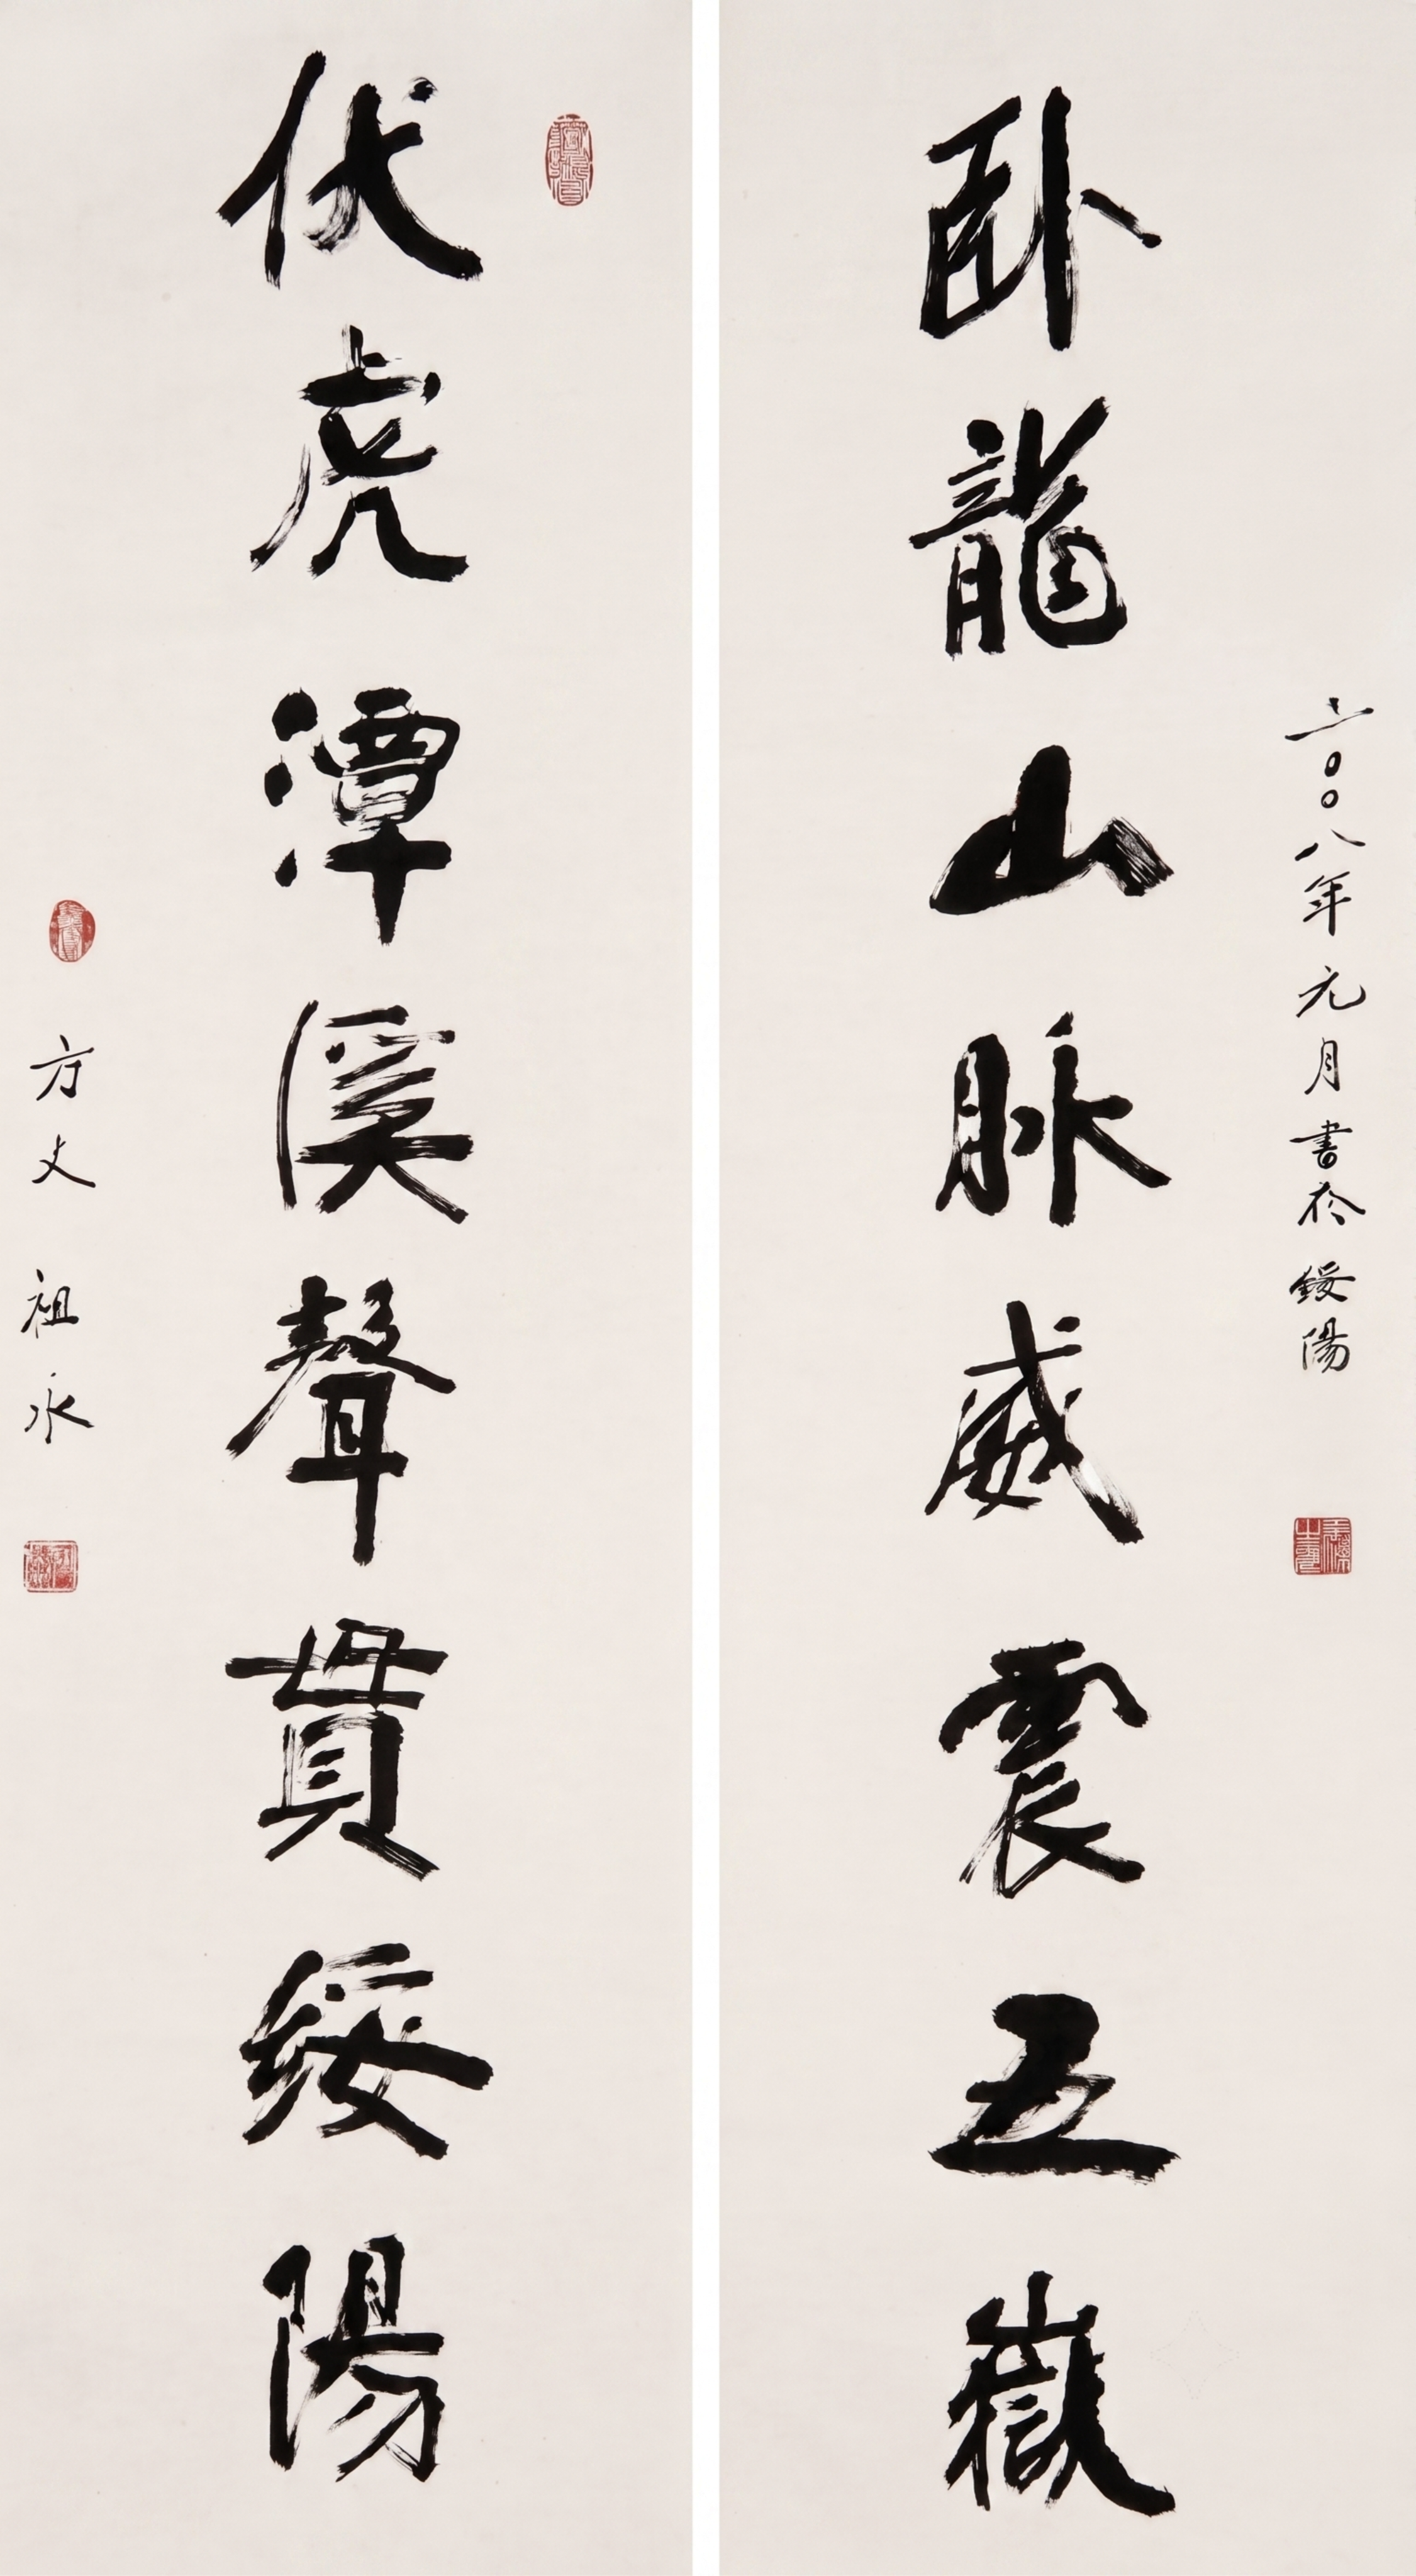 二〇〇八年元月書於綏陽
卧龍山脉威震五嶽
伏虎潭溪聲貫綏陽
方丈祖永